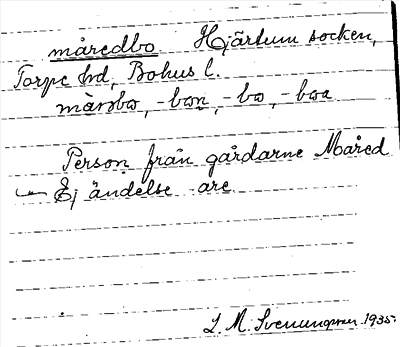 måredbo Hjärtum socken,
Torpe hd, Bohus l.
-bon, -bo, -boa
Person från gårdarne Måred
Ej ändelse are
L. M. Svenungsson 1935.